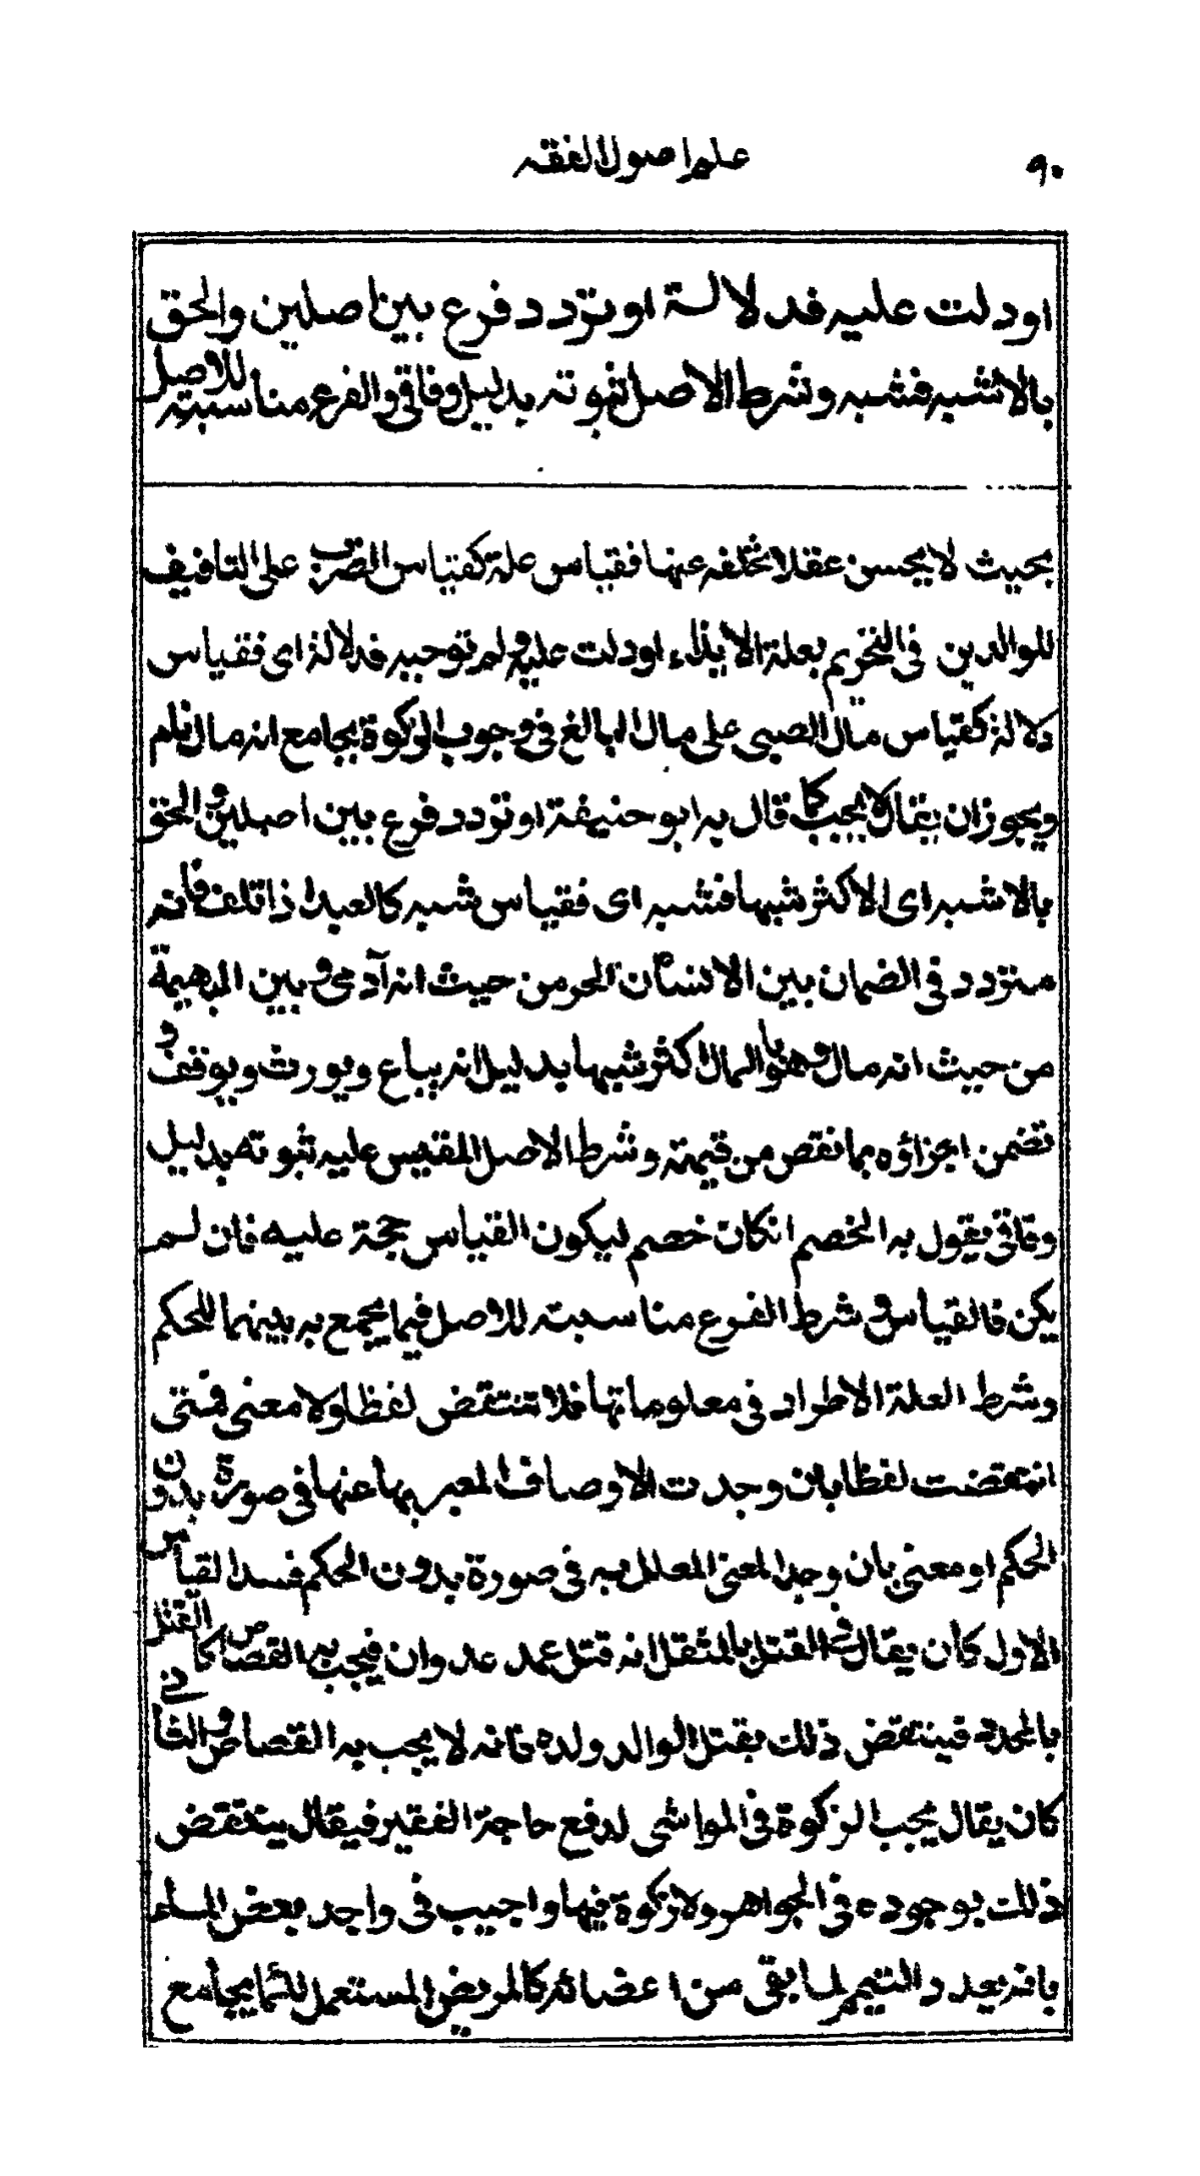 ٩٠
علم اصول الفقه
او دلت عليه فدلالة او تردد فرع بين اصلين والحق
بالاشبه فشبه وشرط الاصل ثبوته بدليل وفاقي والفرع مناسبته للاصل
بحيث لا يحسن عقلا تخلفه عنها فقياس علة كقياس الضرب على التافيف
للوالدين في التحريم بعلة الايذاء او دلت عليه ولم توجبه فدلالة اي فقياس
دلالة كقياس مال الصبي على مال البالغ في وجوب الزكوة بجامع انه مال نام
ويجوز ان يقال لا يجب كما قال به ابو حنيفة او تردد فرع بين اصلين والحق
بالاشبه اي الاكثر شبها فشبه اي فقياس شبه كالعبد اذا تلف فانه
متردد في الضمان بين الانسان الحر من حيث انه آدمي وبين البهيمة
من حيث انه مال وهو بالمال اكثر شبها بدليل انه يباع ويورث ويوقف و
تضمن اجزاؤه بما نقص من قيمته وشرط الاصل المقيس عليه ثبوته بدليل
وفاقي يقول به الخصم انكان خصم ليكون القياس حجة عليه فان لم
يكن فالقياس وشرط الفرع مناسبته للاصل فيما يجمع به بينهما للحكم
وشرط العلة الاطراد في معلوماتها فلا تنتقض لفظا ولا معنى فمتى
انتقضت لفظا بان وجدت الاوصاف المعبر بها عنها في صورة بدون
الحكم او معنى بان وجد المعنى المعلل به في صورة بدون الحكم فسد القياس
الاول كان يقال في القتل بالمثقل انه قتل عمد عدوان فيجب به القصاص كالقتل
بالمحدد فينتقض ذلك بقتل الوالد ولده فانه لا يجب به القصاص والثاني
كان يقال يجب الزكوة في المواشي لدفع حاجة الفقير فيقال ينتقض
ذلك بوجوده في الجواهر ولا زكوة فيها واجيب في واجد بعض الماء
بانه يعدد التيمم لما بقى من اعضائه كالمريض المستعمل للماء بجامع